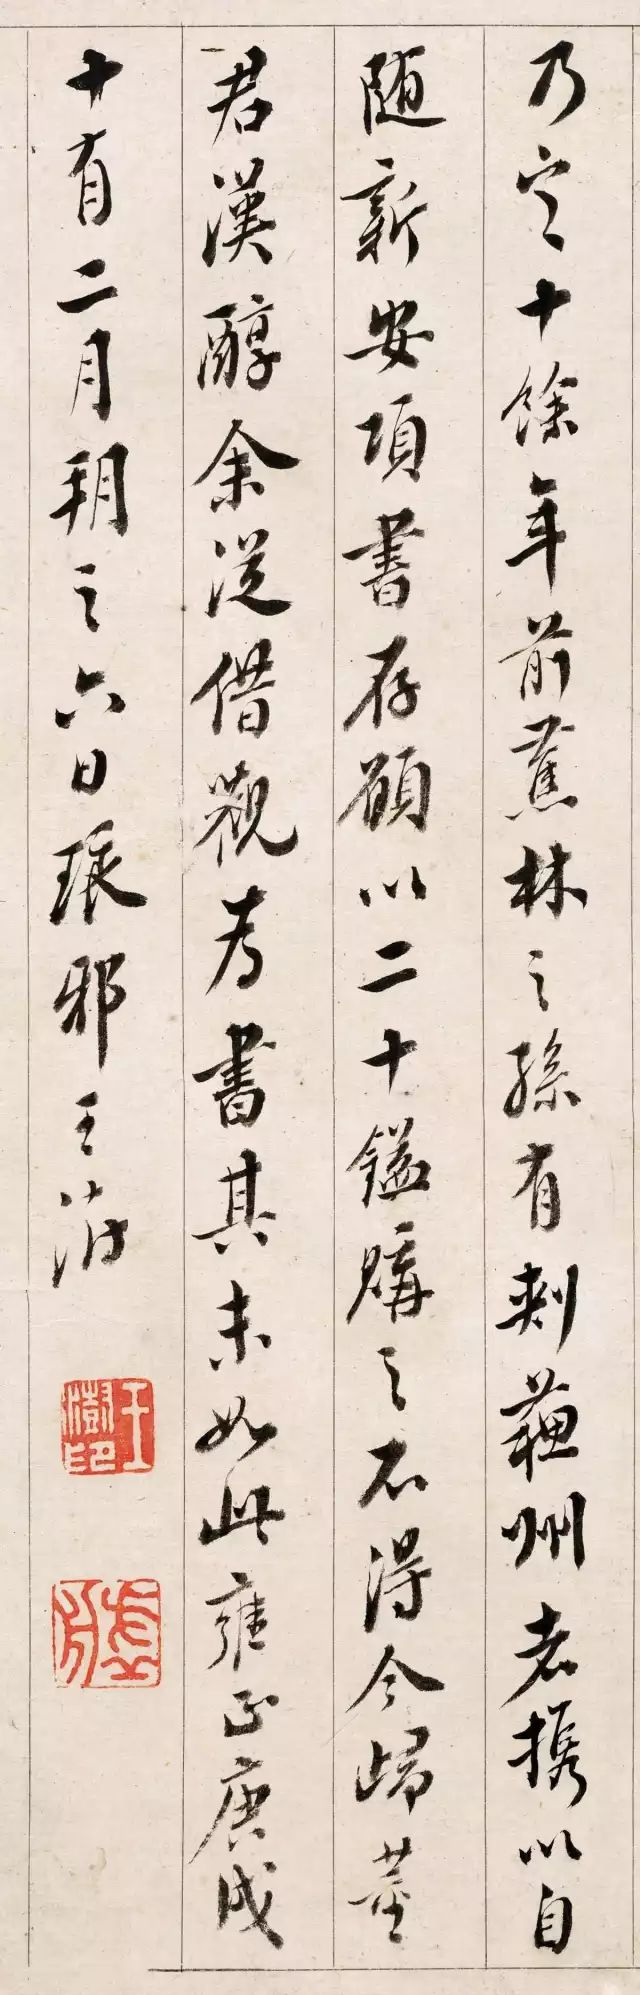 乃定十餘年前蕉林之孫有刺蘇州者攜以自
隨新安項書存願以二十鎰購之不得今歸董
君漢醇余從借觀為書其末如此雍正庚戌
十有二月朔之六日琅邪王澍
王澍印
虛舟